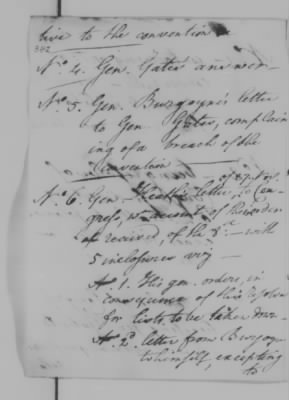 tive to the convention
382
No. 4. Gen. Gates answer
No. 5. Gen. Burgoyne's letter
to Gen Gates, complain
ing of a breach of the
Convention
No. 6. Gen Heath's letter, to Con
gress, of the order
received, of the 8th — with
5 inclosures viz —
No. 1. His gen. orders, in
consequence of their Resolve
for lists to be taken
No. 2d. letter from Burgoy
to himself, excepting
to